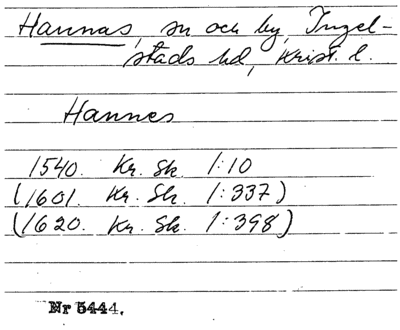 Hannas, sn och by, Ingel-
stads hd, Krist. l.
Hannes
1540. Kr. Sk. 1:10
(1601. Kr. Sk. 1:337)
(1620. Kr. Sk. 1:398)
Nr 5444.